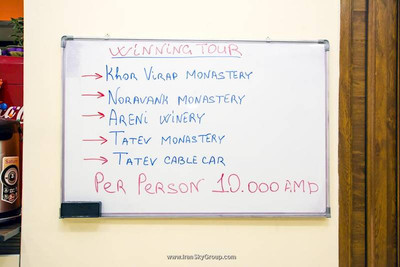 WINNING TOUR
→ KHOR VIRAP MONASTERY
→ NORAVANK MONASTERY
→ ARENI WINERY
→ TATEV MONASTERY
→ TATEV CABLE CAR
PER PERSON 10.000 AMD
www.IranSkyGroup.com